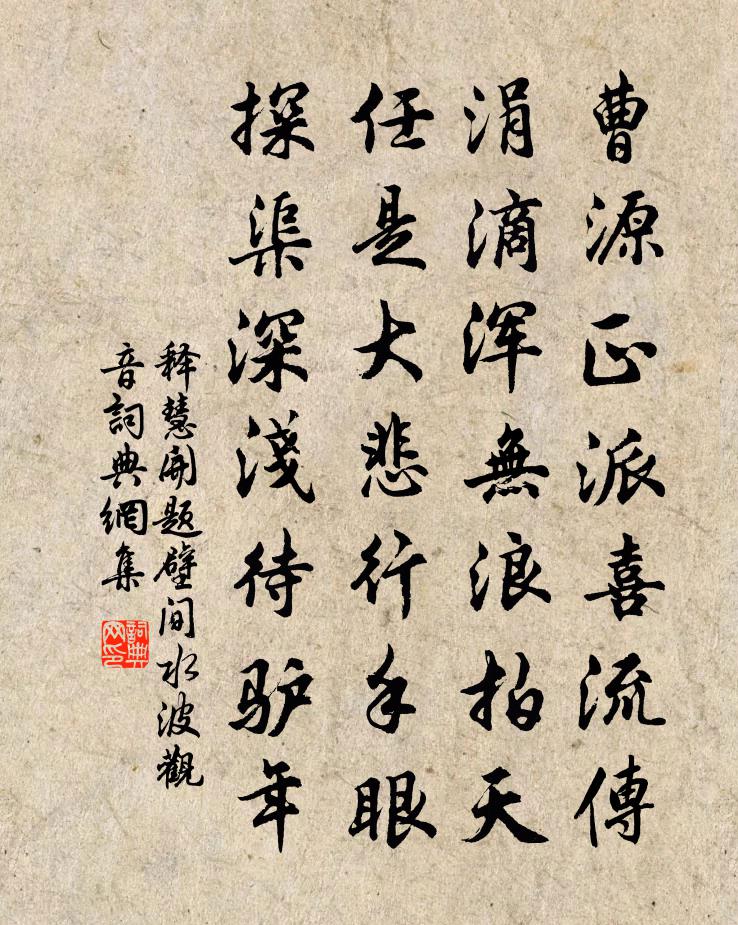 曹源正派喜流傳
涓滴渾無浪拍天
任是大悲行手眼
探渠深淺待驴年
释慧開題壁间水波觀
音詞典網集
詞典網印